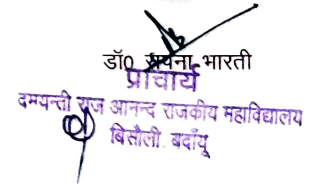 डॉ0 भारती
प्राचार्य
दमयन्ती राज आनन्द राजकीय महाविद्यालय
बिसौली बदाँयू